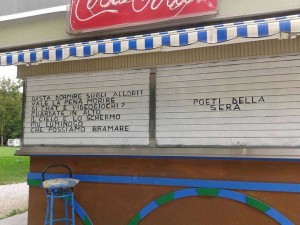 Coca-Cola
BASTA DORMIRE SUGLI ALLORI!
VALE LA PENA MORIRE
DI CHAT E VIDEOGIOCHI?
GUARDATE IN ALTO
IL CIELO È LO SCHERMO
PIÙ LUMINOSO
CHE POSSIAMO BRAMARE
POETI DELLA
SERA